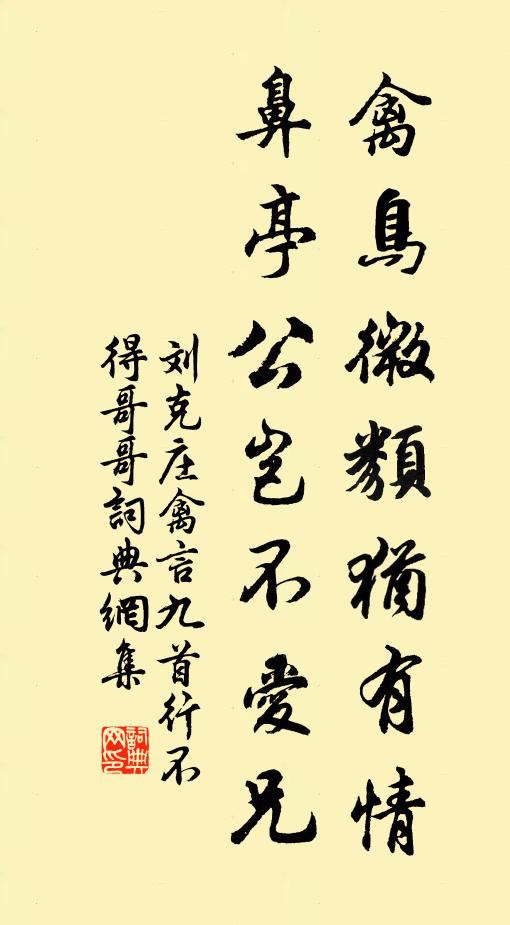 禽鳥微類猶有情
鼻亭公豈不愛兄
刘克庄禽言九首行不
得哥哥詞典網集
詞典网印